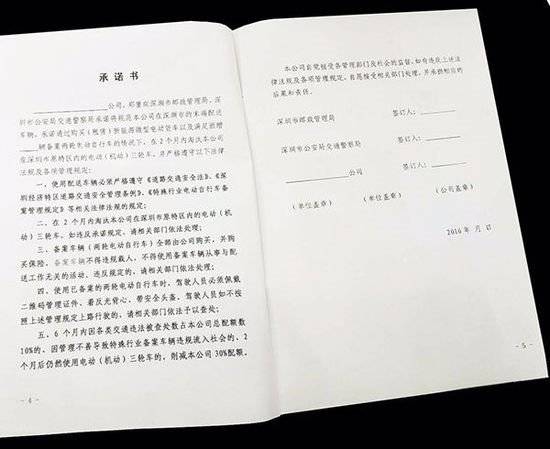 承诺书
____________公司，郑重向深圳市邮政管理局、深
圳市公安局交通警察局承诺将规范本公司在深圳市的末端配送
车辆，承诺通过购买（租赁）新能源微型电动货车以及满足新增
____辆备案两轮电动自行车的情况下，在 2 个月内淘汰本公司
在深圳市原特区内的电动（机动）三轮车，并严格遵守以下法律
法规及各项管理规定：
一、使用配送车辆必须严格遵守《道路交通安全法》、《深
圳经济特区道路交通安全管理条例》、《特殊行业电动自行车备
案管理规定》等相关法律法规的规定；
二、在 2 个月内淘汰本公司在深圳市原特区内的电动（机
动）三轮车，如违反承诺规定，请相关部门依法处理；
三、备案车辆（两轮电动自行车）全部由公司购买，并购
买保险，备案车辆不得违规载人，不得使用备案车辆从事与配
送工作无关的活动，违反规定的，请相关部门依法处理；
四、使用已备案的两轮电动自行车时，驾驶人员必须佩戴
二维码管理证件、着反光背心、带安全头盔，驾驶人员如不按
照上述管理规定上路行驶的，请相关部门依法予以查处；
五、6 个月内因各类交通违法被查处数占本公司总配额数
10%的、因管理不善导致特殊行业备案车辆违规流入社会的、2
个月后仍然使用电动（机动）三轮车的，削减本公司 30%配额。
- 4 -
本公司自觉接受各管理部门及社会的监督，如有违反上述法
律法规及各项管理规定，自愿接受相关部门处理，并承担相应的
后果和责任。
深圳市邮政管理局 签订人：
深圳市公安局交通警察局 签订人：
____________公司 签订人：
（单位盖章） （单位盖章） （公司盖章）
2016 年 月 日
- 5 -